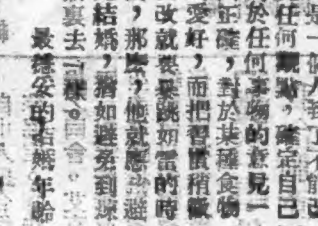 是一個人到了不能改
任何觀點，確定自己
於任何事物的意見一
正確，對於某種食物
愛好，而把習慣稍微
改就要暴跳如雷的時
，那麼，他就應當避
結婚，猶如避免到
裏去一樣。
最穩妥的結婚年齡